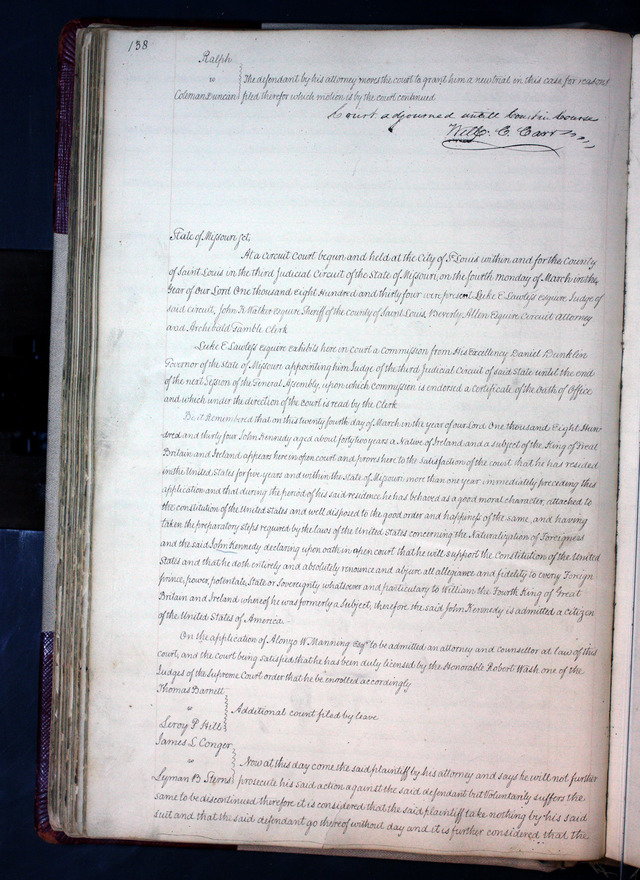 138
Ralph
vs } The defendant by his attorney moves the court to grant him a new trial in this case for reasons
Coleman Duncan } filed therefor which motion is by the court continued
Court adjourned untill Court in Course
Wm. C. Carr
State of Missouri Sct,
At a Circuit Court begun and held at the City of St Louis within and for the County
of Saint Louis in the third Judicial Circuit of the State of Missouri, on the fourth monday of March in the
Year of Our Lord One thousand Eight Hundred and thirty four were present Luke E Lawless esquire Judge of
said circuit, John K Walker Esquire Sheriff of the county of Saint Louis, Beverly Allen Esquire Circuit Attorney
and Archibald Gamble Clerk
Luke E Lawless esquire exhibits here in court a commission from His Excellency Daniel Dunklin
Governor of the State of Missouri appointing him Judge of the third Judicial Circuit of said State until the end
of the next Session of the General Assembly, upon which commission is endorsed a certificate of the Oath of Office
and which under the direction of the court is read by the Clerk
Be it Remembered that on this twenty fourth day of March in the year of our Lord One thousand Eight Hun
dred and thirty four John Kennedy aged about forty two years a Native of Ireland and a subject of the King of Great
Britain and Ireland appears here in open court and proves here to the satisfaction of the court that he has resided
in the United States for five years and within the state of Missouri more than one year immediately preceding this
application and that during the period of his said residence he has behaved as a good moral character, attached to
the constitution of the United states and well disposed to the good order and happiness of the same, and having
taken the preparatory steps required by the laws of the United States concerning the Naturalization of Foreigners
and the said John Kennedy declaring upon oath in open court that he will support the Constitution of the United
States and that he doth entirely and absolutely renounce and abjure all allegiance and fidelity to every Foreign
prince, power, potentate, State or Sovereignty whatsoever and particularly to William the Fourth King of Great
Britain and Ireland whereof he was formerly a Subject, therefore the said John Kennedy is admitted a citizen
of the United States of America.
On the application of Alonzo W. Manning Esqr to be admitted an attorney and counsellor ad law of this
court, and the court being satisfied that he has been duly licensed by the Honorable Robert Wash one of the
Judges of the Supreme Court order that he be enrolled accordingly
Thomas Barnett
vs } Additional count filed by leave
Leroy P Hill
James L Conger
vs } Now at this day come the said plaintiff by his attorney and says he will not further
Lyman B Sterns } prosecute his said action against the said defendant but Voluntarily suffers the
same to be discontinued therefore it is considered that the said plaintiff take nothing by his said
suit and that the said defendant go thereof without day and it is further considered that the